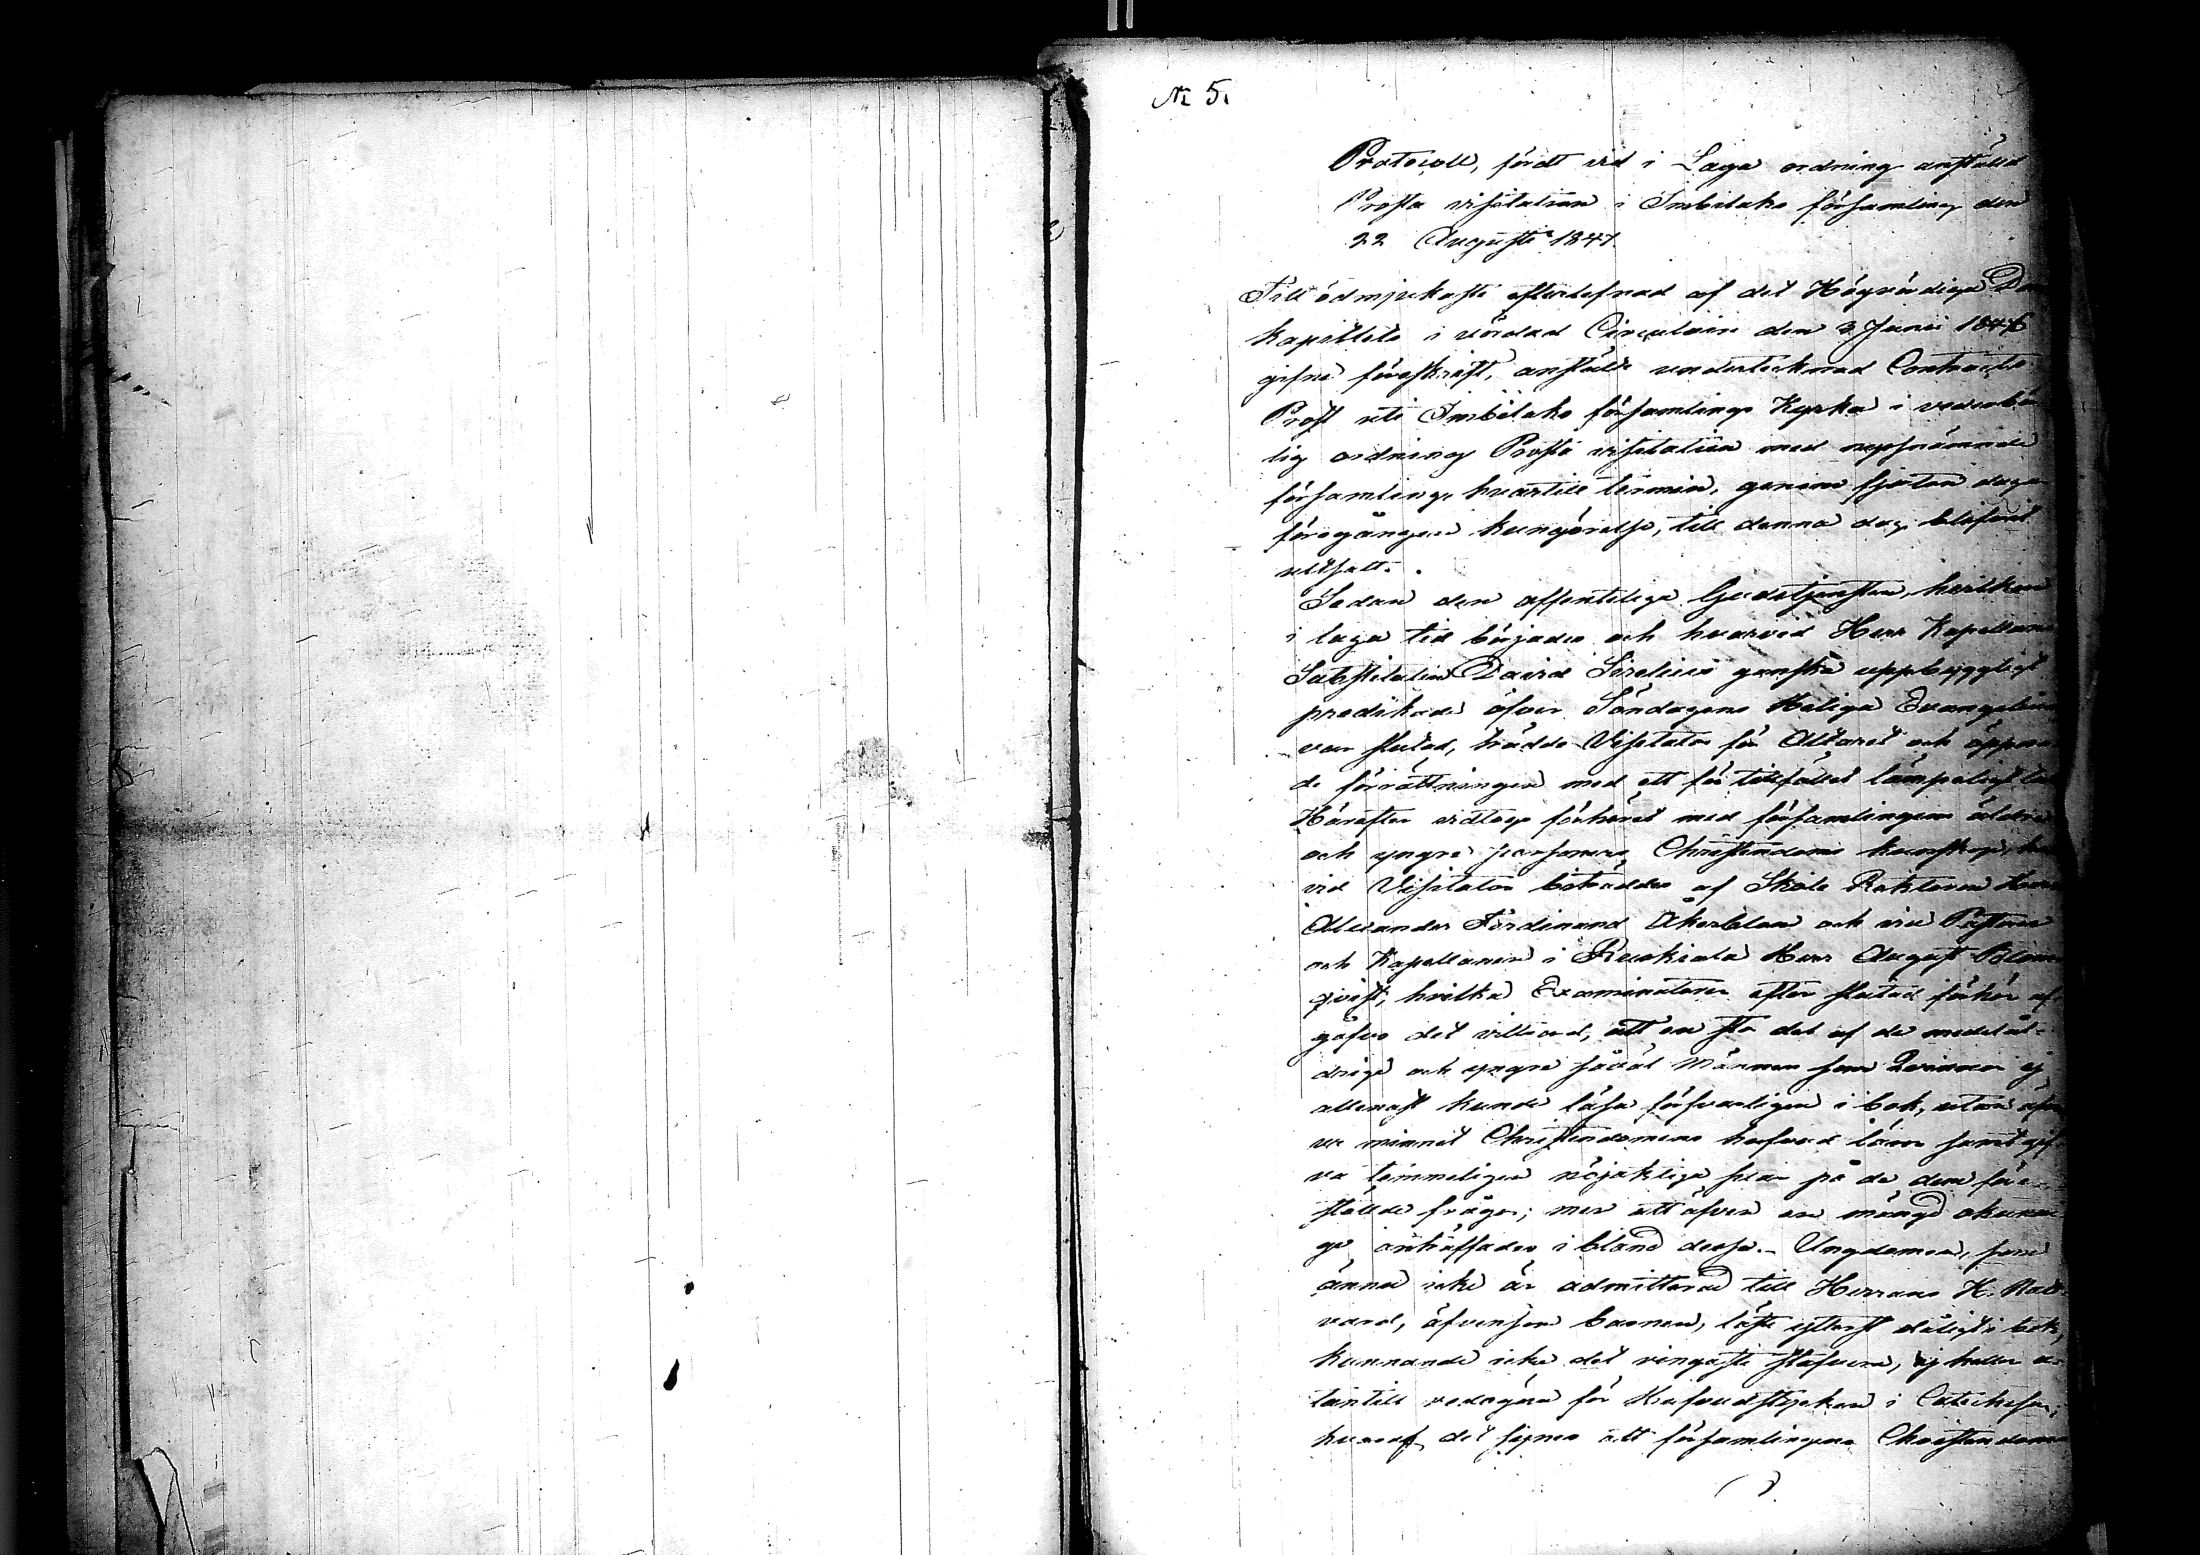 № 5.
Protocoll, fördt vid i Laga ordning anstäld
Prosta visitation i Imbilaks församling den
22 Augusti 1847.
Till ödmjukaste efterlefnad af det Högvördiga Dom
kapitlets i vördad Circulaire den 3 Junii 1846
gifne föreskrift, anstälde undertecknad Contracts
Prost uti Imbilaks församlings Kyrka i vederbör
lig ordning Prosta visitation med
församling, hvartill termin, genom fjorton dagar
föregången kungörelse, till denna dag blifvit
utsatt.
Sedan den offentliga Gudstjensten, hvilken
i laga tid börjades och hvarvid Herr Kapellans
Substituten David Sirelius ganska uppbyggligt
predikade öfver Söndagens Heliga Evangelium
var slutad, trädde Visitator för Altaret och öppna
de förrättningen med ett för tillfället lämpeligt tal
Härefter vidtogs förhöret med församlingens äldre
och yngre personers Christendoms kunskap, hvar
vid Visitator biträddes af Skole Rektoren Herr
Alexander Ferdinand Åkerblom och vice Pastorn
och Kapellanen i Ruskiala Herr August Blom
qvist, hvilka Examinatorer efter slutad förhör af
gåfvo det vittsord, att en stor del af de medelål-
drige och yngre såväl Männer som Qvinnor ej
allenast kunde läsa försvarligen i bok, utan äfven
ur minnet Christendomens hufvud läror samt gif
va temmeligen nöjaktiga svar på de dem före-
ställde frågor; men att äfven en mängd okunni
ge anträffades i bland dessa. - Ungdomen, som
ännu icke är admitterad till Herrans H. Natt
vard, äfvensom barnen, läste ytterst dåligt i bok,
kunnande icke det ringaste stafvera, ej heller u-
tantill redogöra för Hufvudstycken i Catechesen;
hvaraf det synes att församlingens Christendoms